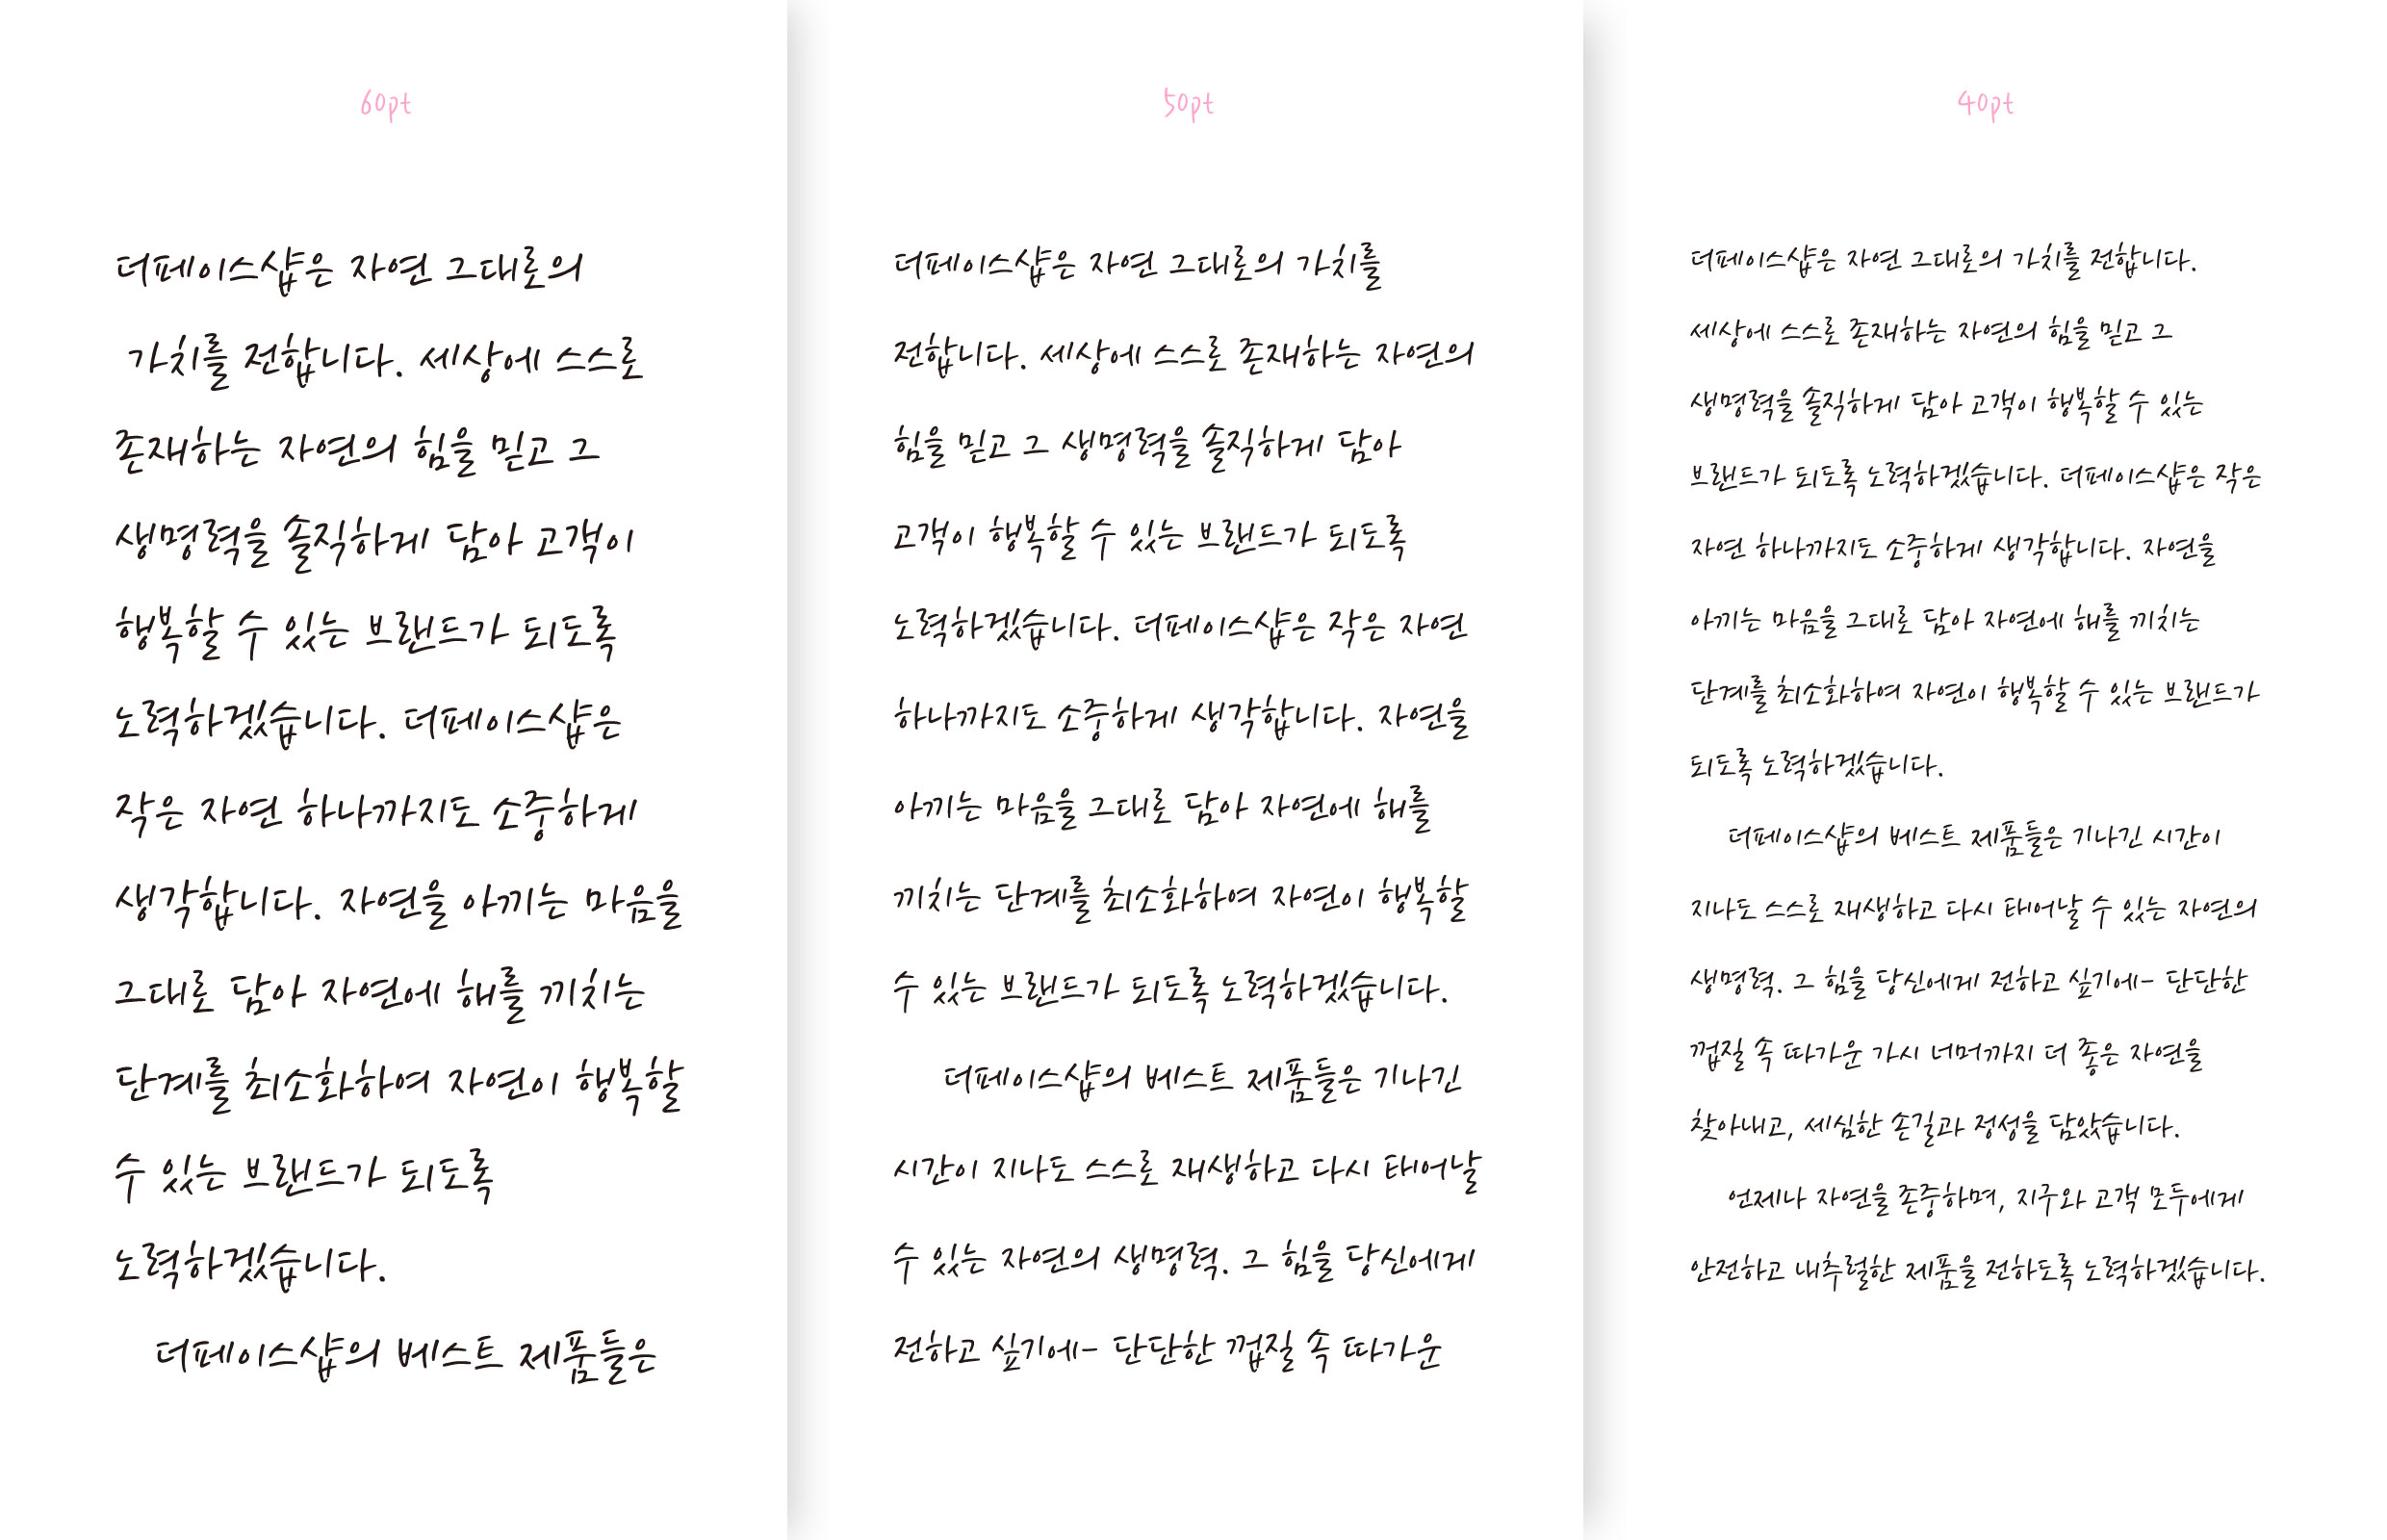 60pt
더페이스샵은 자연 그대로의
가치를 전합니다. 세상에 스스로
존재하는 자연의 힘을 믿고 그
생명력을 솔직하게 담아 고객이
행복할 수 있는 브랜드가 되도록
노력하겠습니다. 더페이스샵은
작은 자연 하나까지도 소중하게
생각합니다. 자연을 아끼는 마음을
그대로 담아 자연에 해를 끼치는
단계를 최소화하여 자연이 행복할
수 있는 브랜드가 되도록
노력하겠습니다.
더페이스샵의 베스트 제품들은
50pt
더페이스샵은 자연 그대로의 가치를
전합니다. 세상에 스스로 존재하는 자연의
힘을 믿고 그 생명력을 솔직하게 담아
고객이 행복할 수 있는 브랜드가 되도록
노력하겠습니다. 더페이스샵은 작은 자연
하나까지도 소중하게 생각합니다. 자연을
아끼는 마음을 그대로 담아 자연에 해를
끼치는 단계를 최소화하여 자연이 행복할
수 있는 브랜드가 되도록 노력하겠습니다.
더페이스샵의 베스트 제품들은 기나긴
시간이 지나도 스스로 재생하고 다시 태어날
수 있는 자연의 생명력. 그 힘을 당신에게
전하고 싶기에- 단단한 껍질 속 따가운
40pt
더페이스샵은 자연 그대로의 가치를 전합니다.
세상에 스스로 존재하는 자연의 힘을 믿고 그
생명력을 솔직하게 담아 고객이 행복할 수 있는
브랜드가 되도록 노력하겠습니다. 더페이스샵은 작은
자연 하나까지도 소중하게 생각합니다. 자연을
아끼는 마음을 그대로 담아 자연에 해를 끼치는
단계를 최소화하여 자연이 행복할 수 있는 브랜드가
되도록 노력하겠습니다.
더페이스샵의 베스트 제품들은 기나긴 시간이
지나도 스스로 재생하고 다시 태어날 수 있는 자연의
생명력. 그 힘을 당신에게 전하고 싶기에- 단단한
껍질 속 따가운 가시 너머까지 더 좋은 자연을
찾아내고, 세심한 손길과 정성을 담았습니다.
언제나 자연을 존중하며, 지구와 고객 모두에게
안전하고 내추럴한 제품을 전하도록 노력하겠습니다.